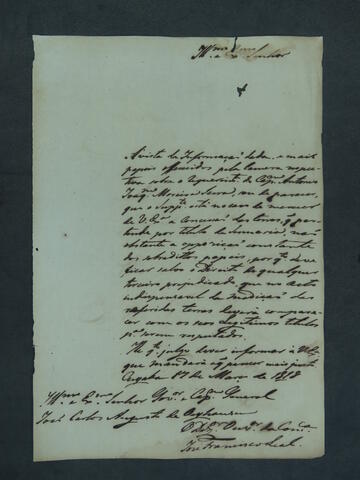 Illmo. e Exmo. Senhor
A vista da Informaçaõ dada e mais
papeis offerecidos pela Camera respe-
ctiva sobre o requerimto. do Capm. Antonio
Joaqm. Moreira, me parece,
que o Suppte. está no caso de merecer
de V. Exa. a Concessaõ das terras q per-
tende por titulo de Sesmaria, naõ
obstante a opposiçaõ constante
dos sobreditos papeis, por q deve
ficar salvo o direito de qualquer
terceiro prejudicado que no acto
indispensavel da mediçaõ das
referidas terras deverá compare-
cer com os seos legitimos titulos
pa. serem respeitados.
He o q julgo dever informar a V. Exa.
que mandará o q parecer mais justo
Cuyabá 17 de Maro. de 1818
Illmo. e Exmo. Senhor Govor. e Capm. General
João Carlos Augusto de Oeynhausen
José Francisco Leal